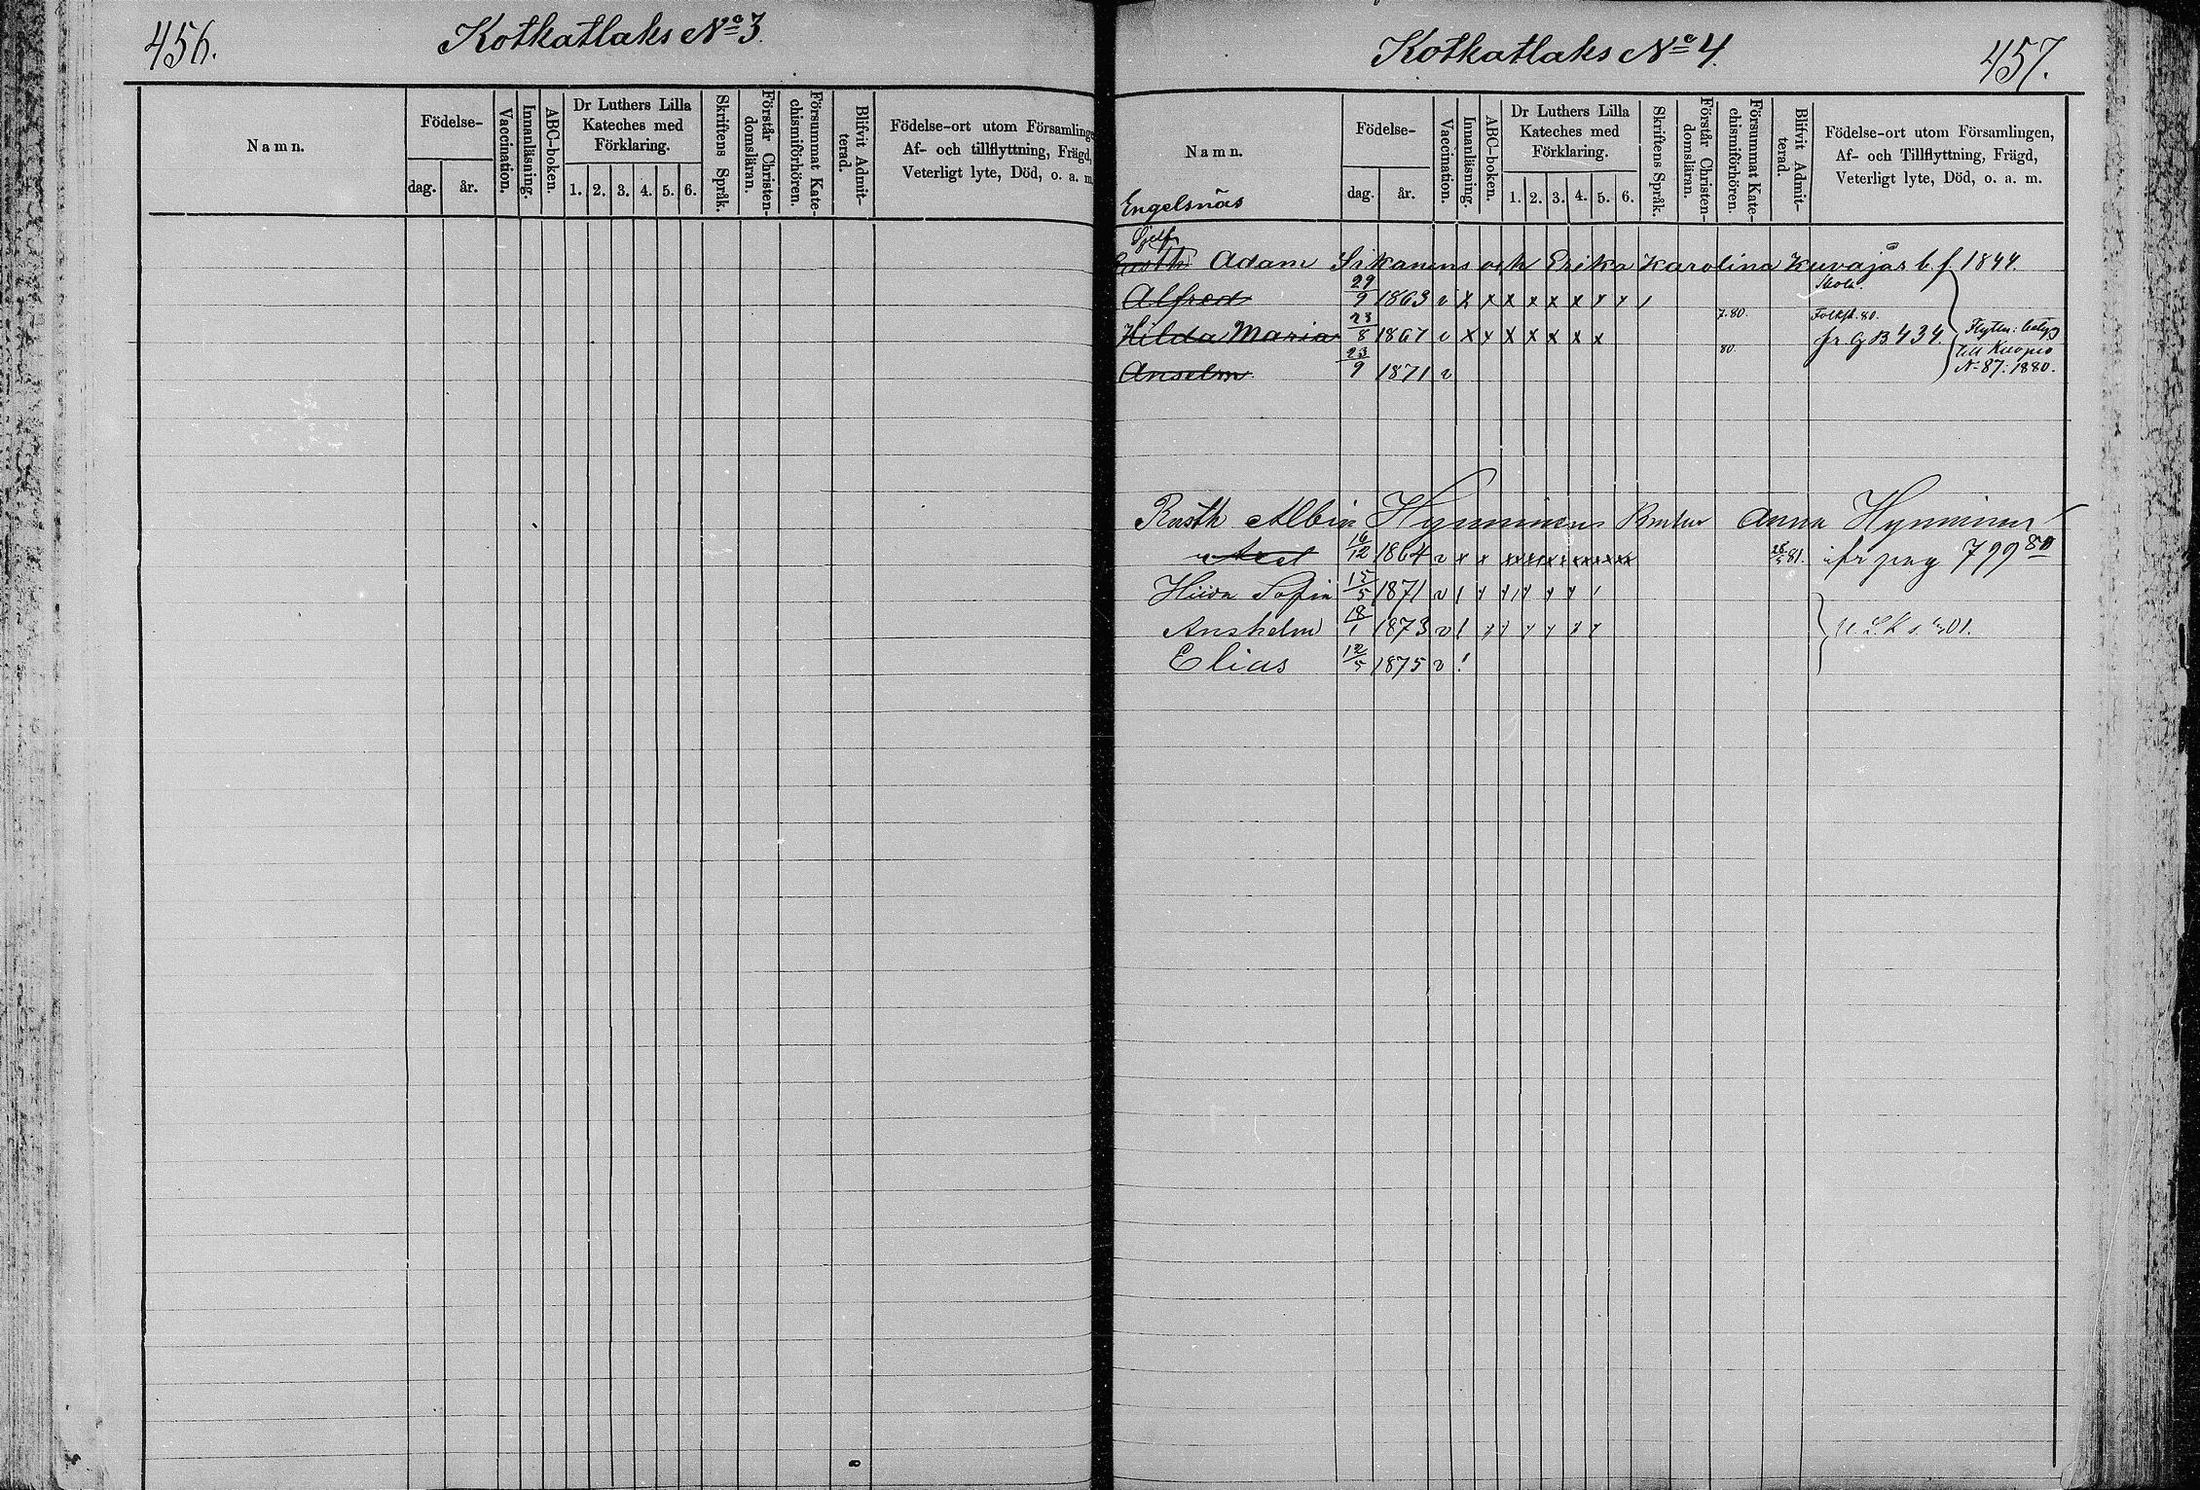 456.
Kotkatlaks No 3.
Namn.
Födelse-
dag.
år.
Vaccination.
Innanläsning.
ABC-boken.
Dr Luthers Lilla
Kateches med
Förklaring.
1. 2. 3. 4. 5. 6.
Skriftens Språk.
Förstår Christen-
domsläran.
Försummat Kate-
chismiförhören.
Blifvit Admit-
terad.
Födelse-ort utom Församlinge
Af- och tillflyttning, Frägd,
Veterligt lyte, Död, o. a. m
Kotkatlaks No 4.
457.
Namn.
Engelsnäs
Födelse-
dag.
år.
Vaccination.
Innanläsning.
ABC-boken.
Dr Luthers Lilla
Kateches med
Förklaring.
1. 2. 3. 4. 5. 6.
Skriftens Språk.
Förstår Christen-
domsläran.
Försummat Kate-
chismiförhören.
Blifvit Admit-
terad.
Födelse-ort utom Församlingen,
Af- och Tillflyttning, Frägd,
Veterligt lyte, Död, o. a. m.
Sjelf
Adam Sikanens och Erika Karolina Kuvajas b. f. 1844.
Alfred 29/9 1863 v x x x x x x x x
7.80. Folksk. 80.
Hilda Maria 23/8 1867 v x x x x x x x fr g B 434.
80.
till Kuopio
Anselm 23/9 1871 v N 87: 1880.
Albin Hynninens Anna Hynninen
16/12 1864 v x x x x x x x x x x 81. fr pag 799 80
Sofia 15/5 1871 v
Anshelm 18/1 1873 v
Elias 12/5 1875 v